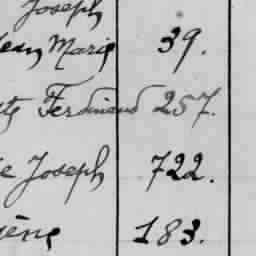 Joseph
Jean Marie 39.
Ferdinand 257.
Joseph 722.
183.